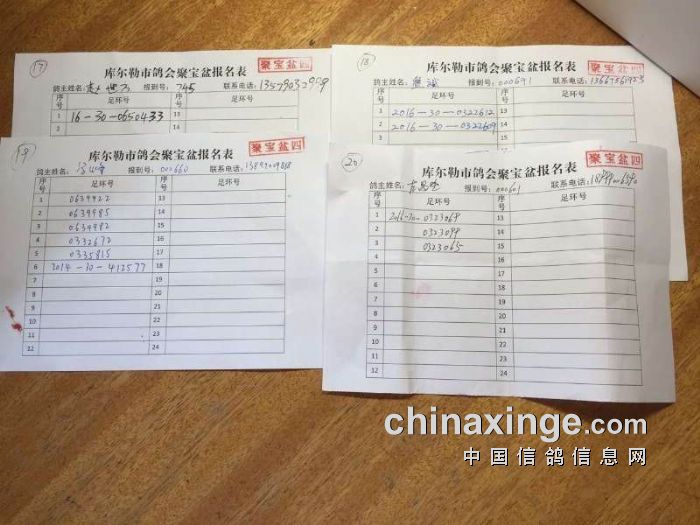 17
聚宝盆四
库尔勒市鸽会聚宝盆报名表
鸽主姓名: 报到号: 745 联系电话:
序号 足环号 序号
1 16-30-0650433 13
2 14
18
聚宝盆四
库尔勒市鸽会聚宝盆报名表
鸽主姓名: 报到号: 000691 联系电话:
序号 足环号 序号 足环号
1 2016-30-0322612 13
2 2016-30-0322609 14
19
聚宝盆四
库尔勒市鸽会聚宝盆报名表
鸽主姓名: 报到号: 000660 联系电话:
序号 足环号 序号 足环号
1 0639922 13
2 0639985 14
3 0639982 15
4 0332672 16
5 0335815 17
6 2014-30-412577 18
7 19
8 20
9 21
10 22
11 23
12 24
20
聚宝盆四
库尔勒市鸽会聚宝盆报名表
鸽主姓名: 报到号: 000601 联系电话:
序号 足环号 序号 足环号
1 2016-30-0323069 13
2 0323099 14
3 0323065 15
4 16
5 17
6 18
7 19
8 20
9 21
10 22
11 23
12 24
chinaxinge.com
中国信鸽信息网